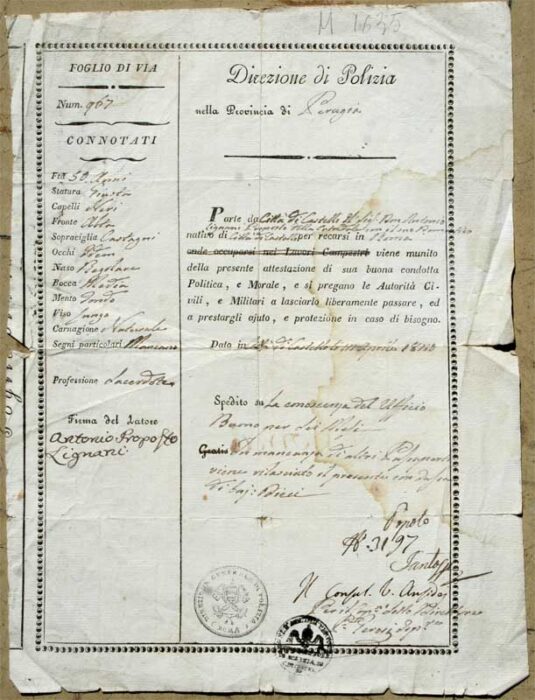 M 1635
FOGLIO DI VIA
Num. 967
CONNOTATI
Età 50 Anni
Statura Giusta
Capelli Neri
Fronte Alta
Sopraciglia Castagni
Occhi Idem
Naso Regolare
Bocca Media
Mento Tondo
Viso Lungo
Carnagione Naturale
Segni particolari Mancano
Professione Sacerdote
Firma del Latore
Antonio Proposto
Lignani
Direzione di Polizia
nella Provincia di Perugia
Parte da Città di Castello il Sig. Don Antonio
Lignani Proposto della Cattedrale con il suo
nativo di Città di Castello per recarsi in Roma
onde occuparsi nei Lavori Campestri viene munito
della presente attestazione di sua buona condotta
Politica, e Morale, e si pregano le Autorità Ci-
vili, e Militari a lasciarlo liberamente passare, ed
a prestargli ajuto, e protezione in caso di bisogno.
Data in C. di Castello Aprile
Spedito su La conoscenza del Ufficio
Buono per
Gratis In mancanza di altri Passaporti
viene rilasciato il presente con
di baj: Dieci
N. 3197
Il Consul.